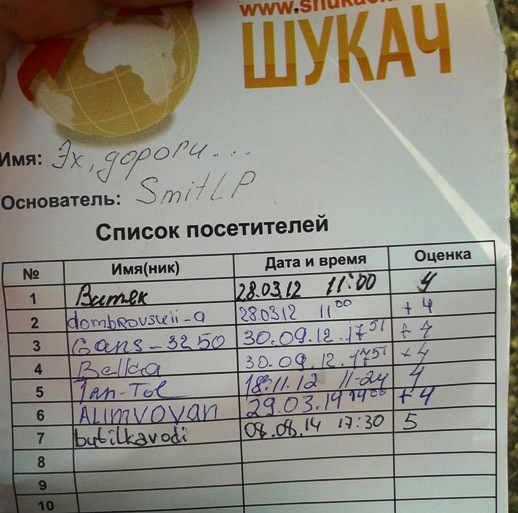 www.shukach
ШУКАЧ
Имя: Эх, дороги...
Основатель: SmitLP
Список посетителей
№ Имя(ник) Дата и время Оценка
1 Витек 28.03.12 11:00 4
2 dombrovskii-a 280312 11 00 +4
3 Gans-3250 30.09.12. 17 51 +4
4 Belka 30.09.12. 17 51 +4
5 Tan-Tol 18.11.12 11-24 4
6 ALIMVOVAN 29.03.14 14 00 +4
7 butilkavodi 08.08.14 17:30 5
8
9
10